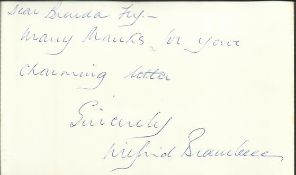 Dear Brenda Fry —
Many thanks for your
charming letter
Sincerely
Wilfrid Brambell